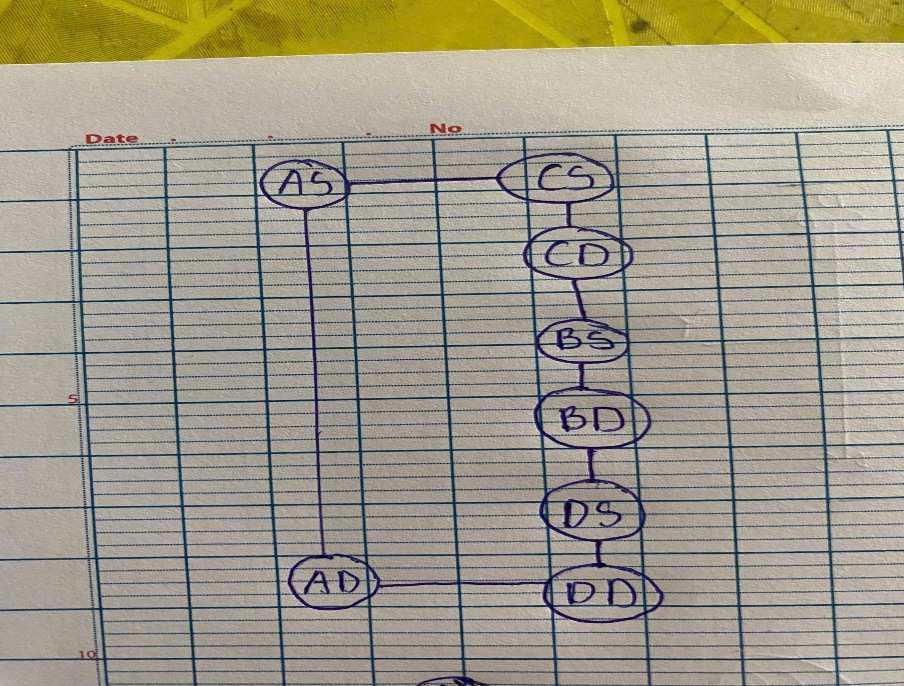 Date No
AS CS
CD
BS
5
BD
DS
AD DD
10